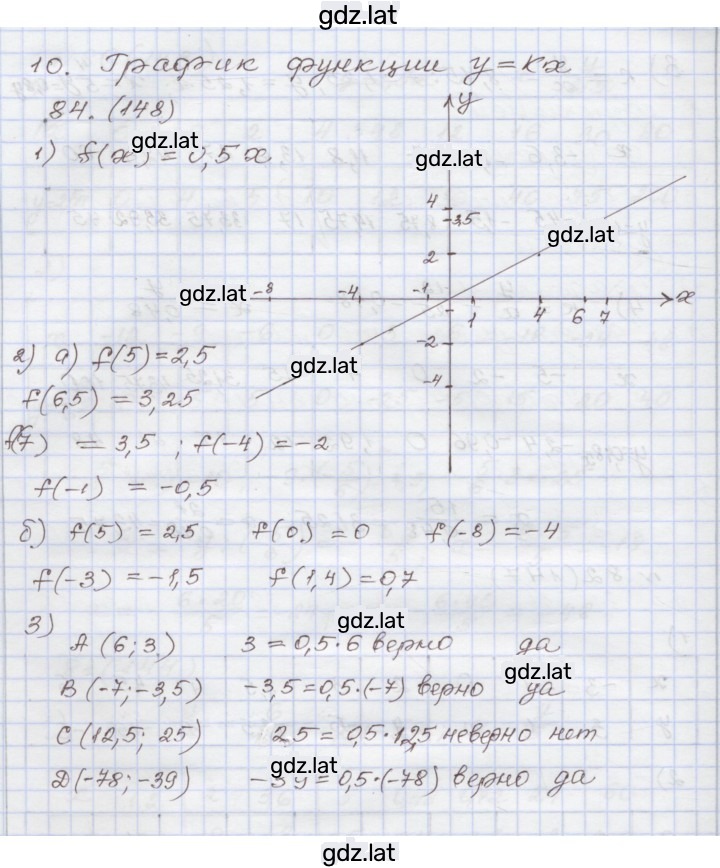 gdz.lat
10. График функции y=kx
84. (148)
gdz.lat
1) f(x) = 0,5x
y
gdz.lat
4
3,5
gdz.lat
2
gdz.lat
-8 -4 -1
x
1 4 6 7
-2
-4
gdz.lat
2) а) f(5)=2,5
f(6,5) = 3,25
f(7) = 3,5 ; f(-4) = -2
f(-1) = -0,5
б) f(5) = 2,5 f(0) = 0 f(-8) = -4
f(-3) = -1,5 f(1,4) = 0,7
gdz.lat
3)
A (6; 3) 3 = 0,5·6 верно да
gdz.lat
B (-7; -3,5) -3,5 = 0,5·(-7) верно да
C (12,5; 25) 25 = 0,5·12,5 неверно нет
gdz.lat
D (-78; -39) -39 = 0,5·(-78) верно да
gdz.lat